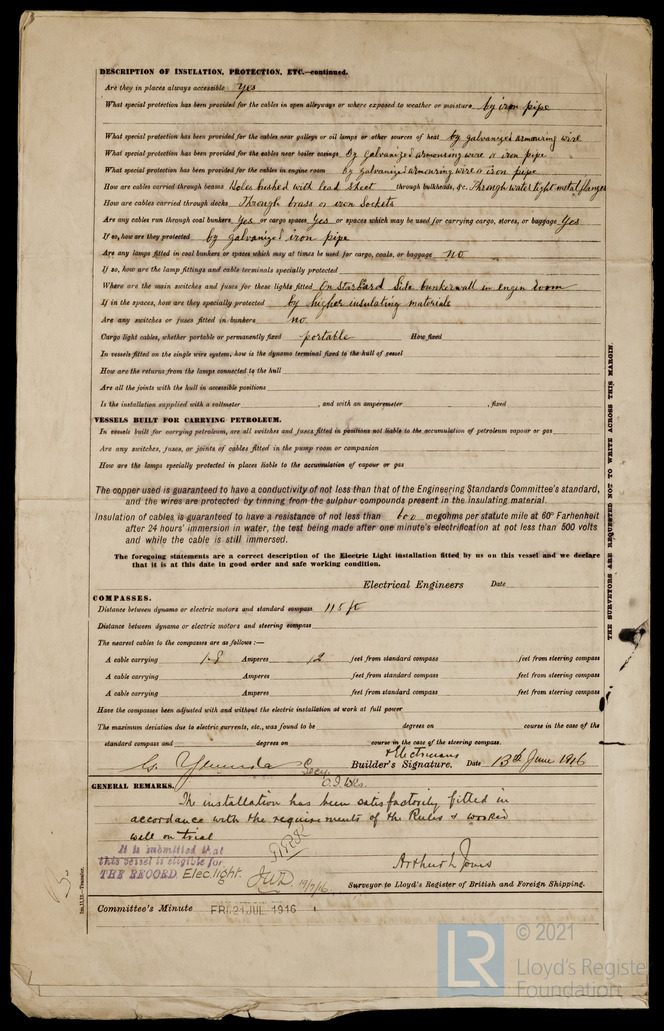 DESCRIPTION OF INSULATION, PROTECTION, ETC.—continued.
Are they in places always accessible Yes
What special protection has been provided for the cables in open alleyways or where exposed to weather or moisture by iron pipe
What special protection has been provided for the cables near galleys or oil lamps or other sources of heat by galvanized armouring wire
What special protection has been provided for the cables near boiler casings By galvanized armouring wire or iron pipe
What special protection has been provided for the cables in engine room By galvanized armouring wire or iron pipe
How are cables carried through beams Holes bushed with lead sheet through bulkheads, &c. Through water tight metal flanges
How are cables carried through decks Through brass or iron sockets
Are any cables run through coal bunkers Yes or cargo spaces Yes or spaces which may be used for carrying cargo, stores, or baggage Yes
If so, how are they protected by galvanized iron pipe
Are any lamps fitted in coal bunkers or spaces which may at times be used for cargo, coals, or baggage no
If so, how are the lamp fittings and cable terminals specially protected
Where are the main switches and fuses for these lights fitted On starboard side bunker wall in engin room
If in the spaces, how are they specially protected by higher insulating materials
Are any switches or fuses fitted in bunkers no
Cargo light cables, whether portable or permanently fixed portable How fixed
In vessels fitted on the single wire system, how is the dynamo terminal fixed to the hull of vessel
How are the returns from the lamps connected to the hull
Are all the joints with the hull in accessible positions
Is the installation supplied with a voltmeter , and with an amperemeter , fixed
VESSELS BUILT FOR CARRYING PETROLEUM.
In vessels built for carrying petroleum, are all switches and fuses fitted in positions not liable to the accumulation of petroleum vapour or gas
Are any switches, fuses, or joints of cables fitted in the pump room or companion
How are the lamps specially protected in places liable to the accumulation of vapour or gas
The copper used is guaranteed to have a conductivity of not less than that of the Engineering Standards Committee's standard,
and the wires are protected by tinning from the sulphur compounds present in the insulating material.
Insulation of cables is guaranteed to have a resistance of not less than 600 megohms per statute mile at 60° Farhenheit
after 24 hours' immersion in water, the test being made after one minute's electrification at not less than 500 volts
and while the cable is still immersed.
The foregoing statements are a correct description of the Electric Light installation fitted by us on this vessel and we declare
that it is at this date in good order and safe working condition.
Electrical Engineers Date
COMPASSES.
Distance between dynamo or electric motors and standard compass 115 ft
Distance between dynamo or electric motors and steering compass
The nearest cables to the compasses are as follows:—
A cable carrying 1.8 Amperes 12 feet from standard compass feet from steering compass
A cable carrying Amperes feet from standard compass feet from steering compass
A cable carrying Amperes feet from standard compass feet from steering compass
Have the compasses been adjusted with and without the electric installation at work at full power
The maximum deviation due to electric currents, etc., was found to be degrees on course in the case of the
standard compass and degrees on course in the case of the steering compass.
& Electricians
Builder's Signature. Date 13th June 1916
GENERAL REMARKS.
The installation has been satisfactorily fitted in
accordance with the requirements of the Rules & worked
well on trial
It is submitted that
this vessel is eligible for
THE RECORD. Elec. light.
JWD 19/7/16
Arthur L Jones
Surveyor to Lloyd's Register of British and Foreign Shipping.
Committee's Minute FRI. 21 JUL 1916
THE SURVEYORS ARE REQUESTED NOT TO WRITE ACROSS THIS MARGIN.
© 2021
Lloyd's Registe
Foundation
LR